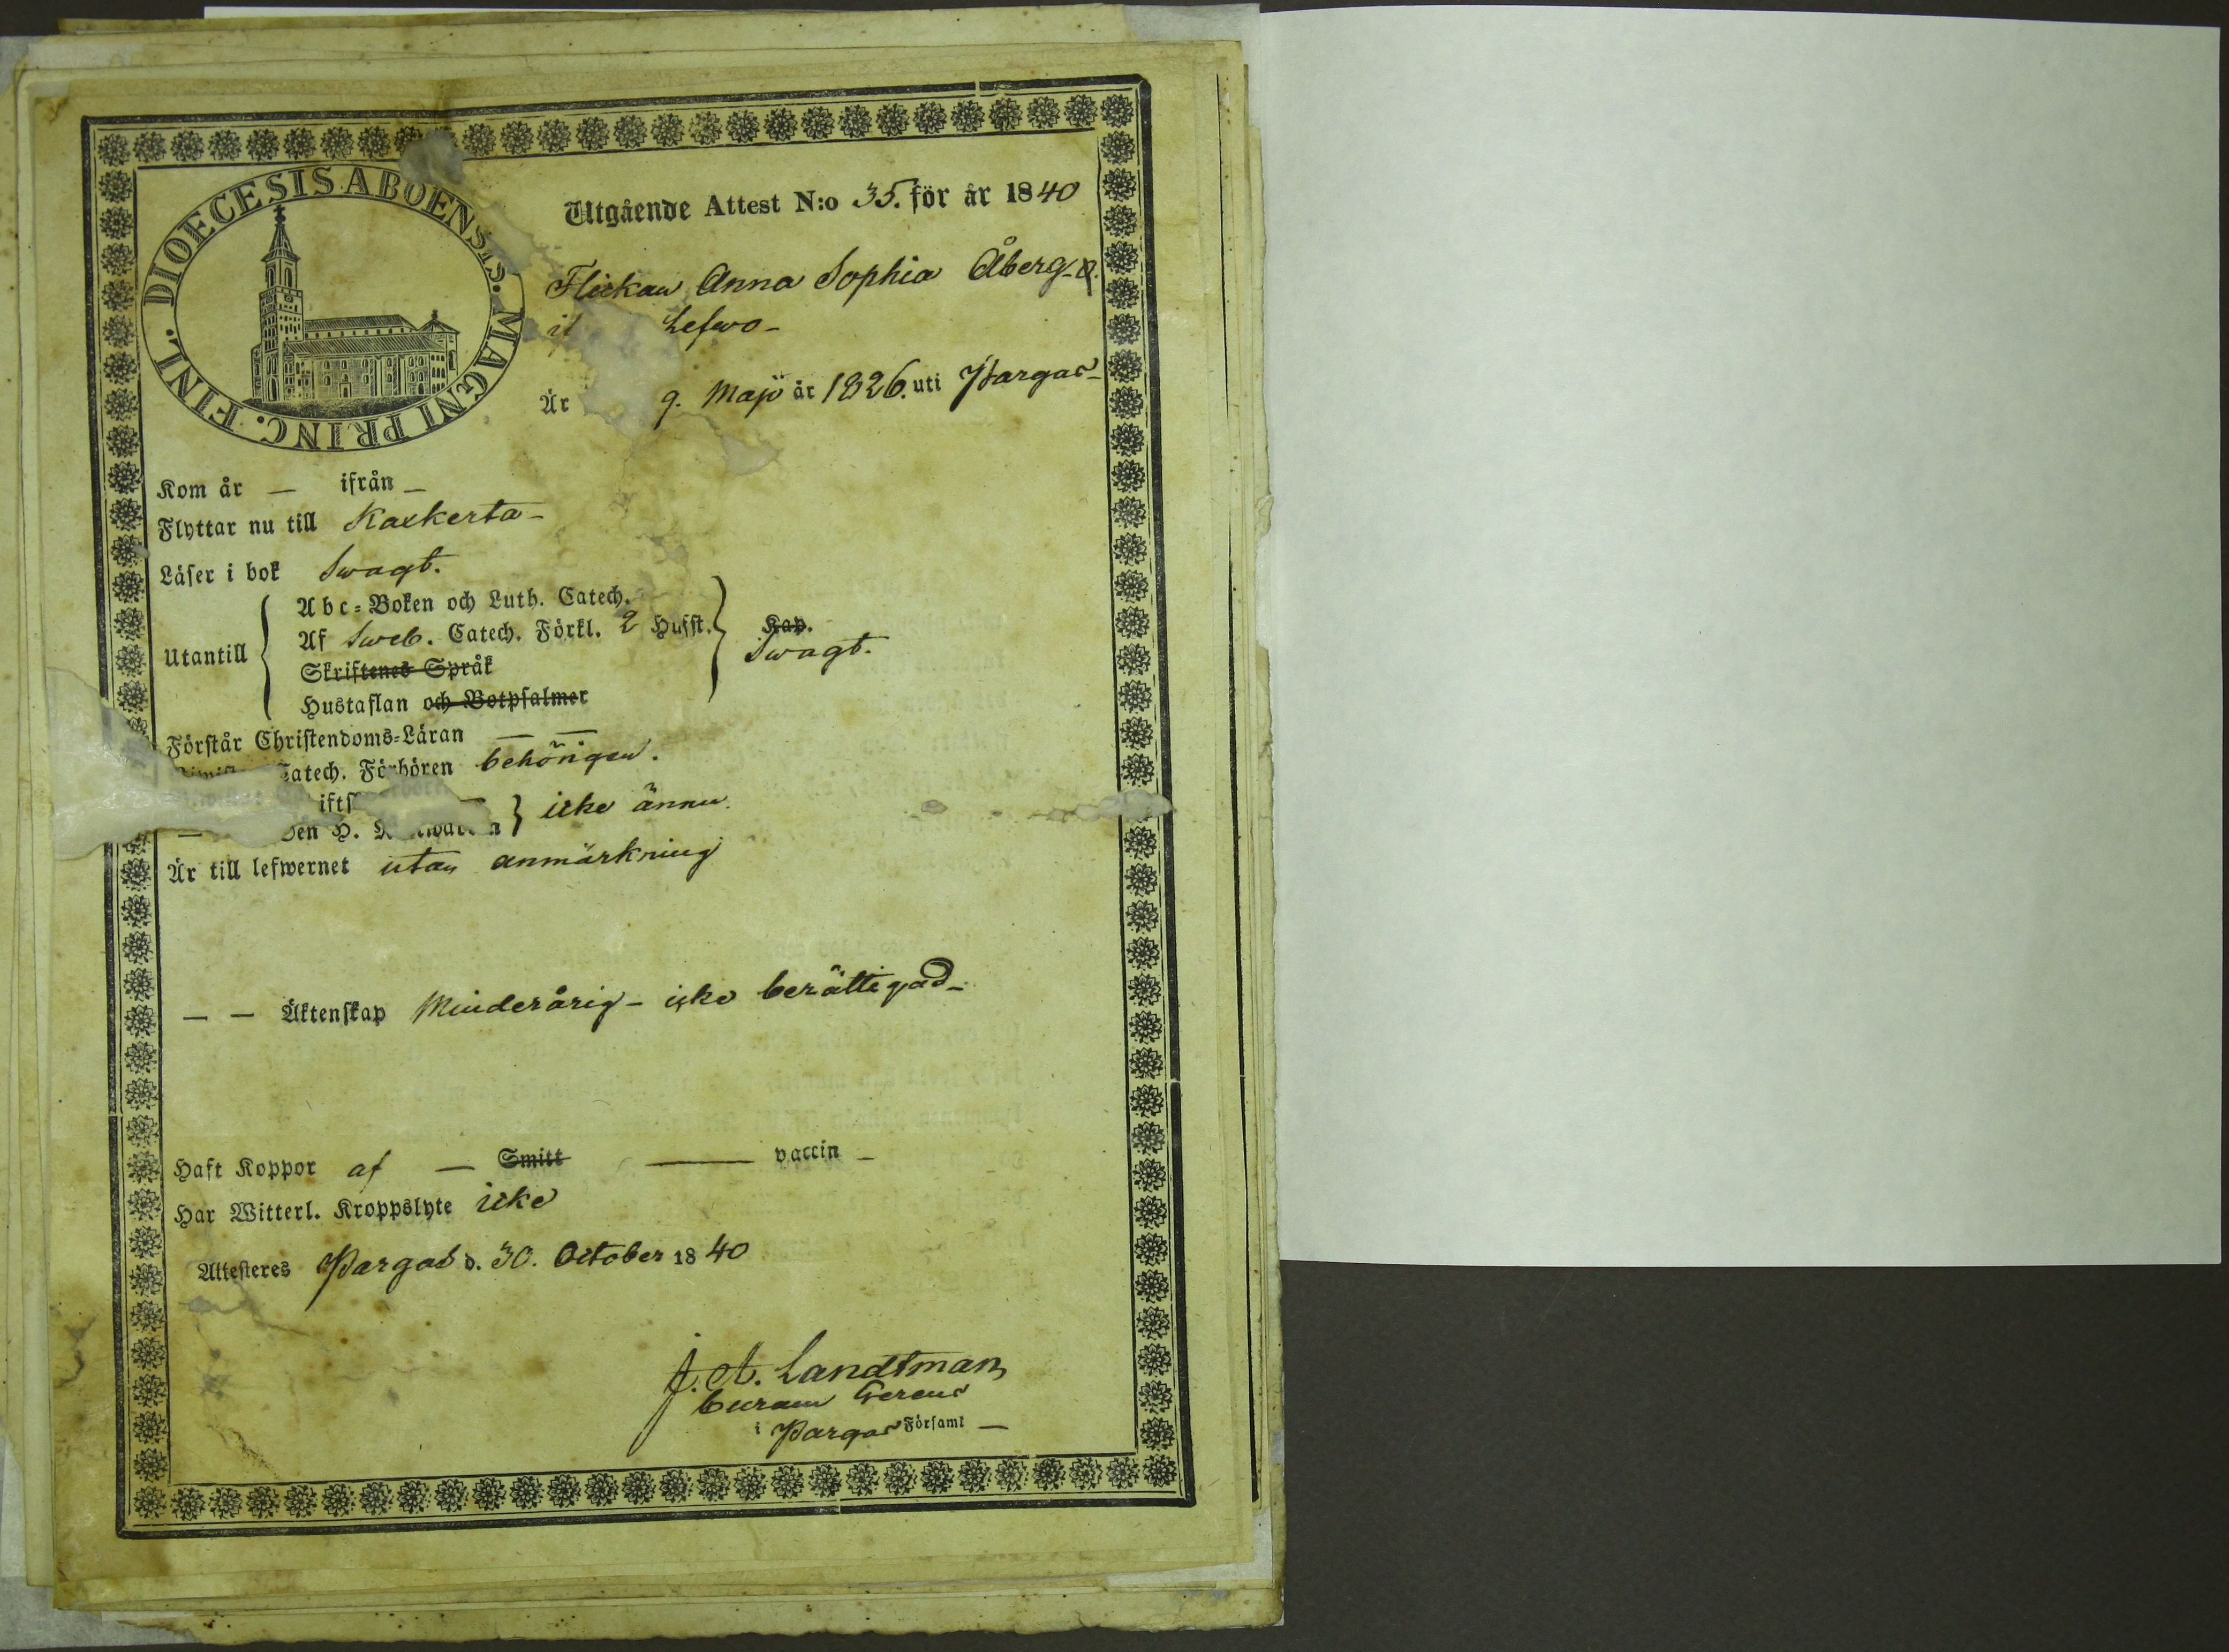 DIOECESIS ABOENSIS. MAGNI PRINC. FINL.
Utgående Attest N:o 35. för år 1840
Flickan Anna Sophia Åberg
Lefwo
Är 9. Maji år 1826. uti Pargas
Kom år — ifrån —
Flyttar nu till Kaskerta
Läser i bok Swagt.
Utantill
Abc-Boken och Luth. Catech.
Af Sweb. Catech. Förkl. 2 Husst. Kap.
Swagt.
Skriftenes Språk
Hustaflan och Botpsalmer
Förstår Christendoms-Läran — —
Catech. Förhören behörigen.
icke ännu.
den H.
Är till lefwernet utan anmärkning
— — Äktenskap Minderårig - icke berättigad
Haft Koppor af — Smitt — vaccin —
Har Witterl. Kroppslyte icke
Attesteres Pargas d. 30. October 1840
J. A. Landtman
Curam Gerens
i Pargas Församl —